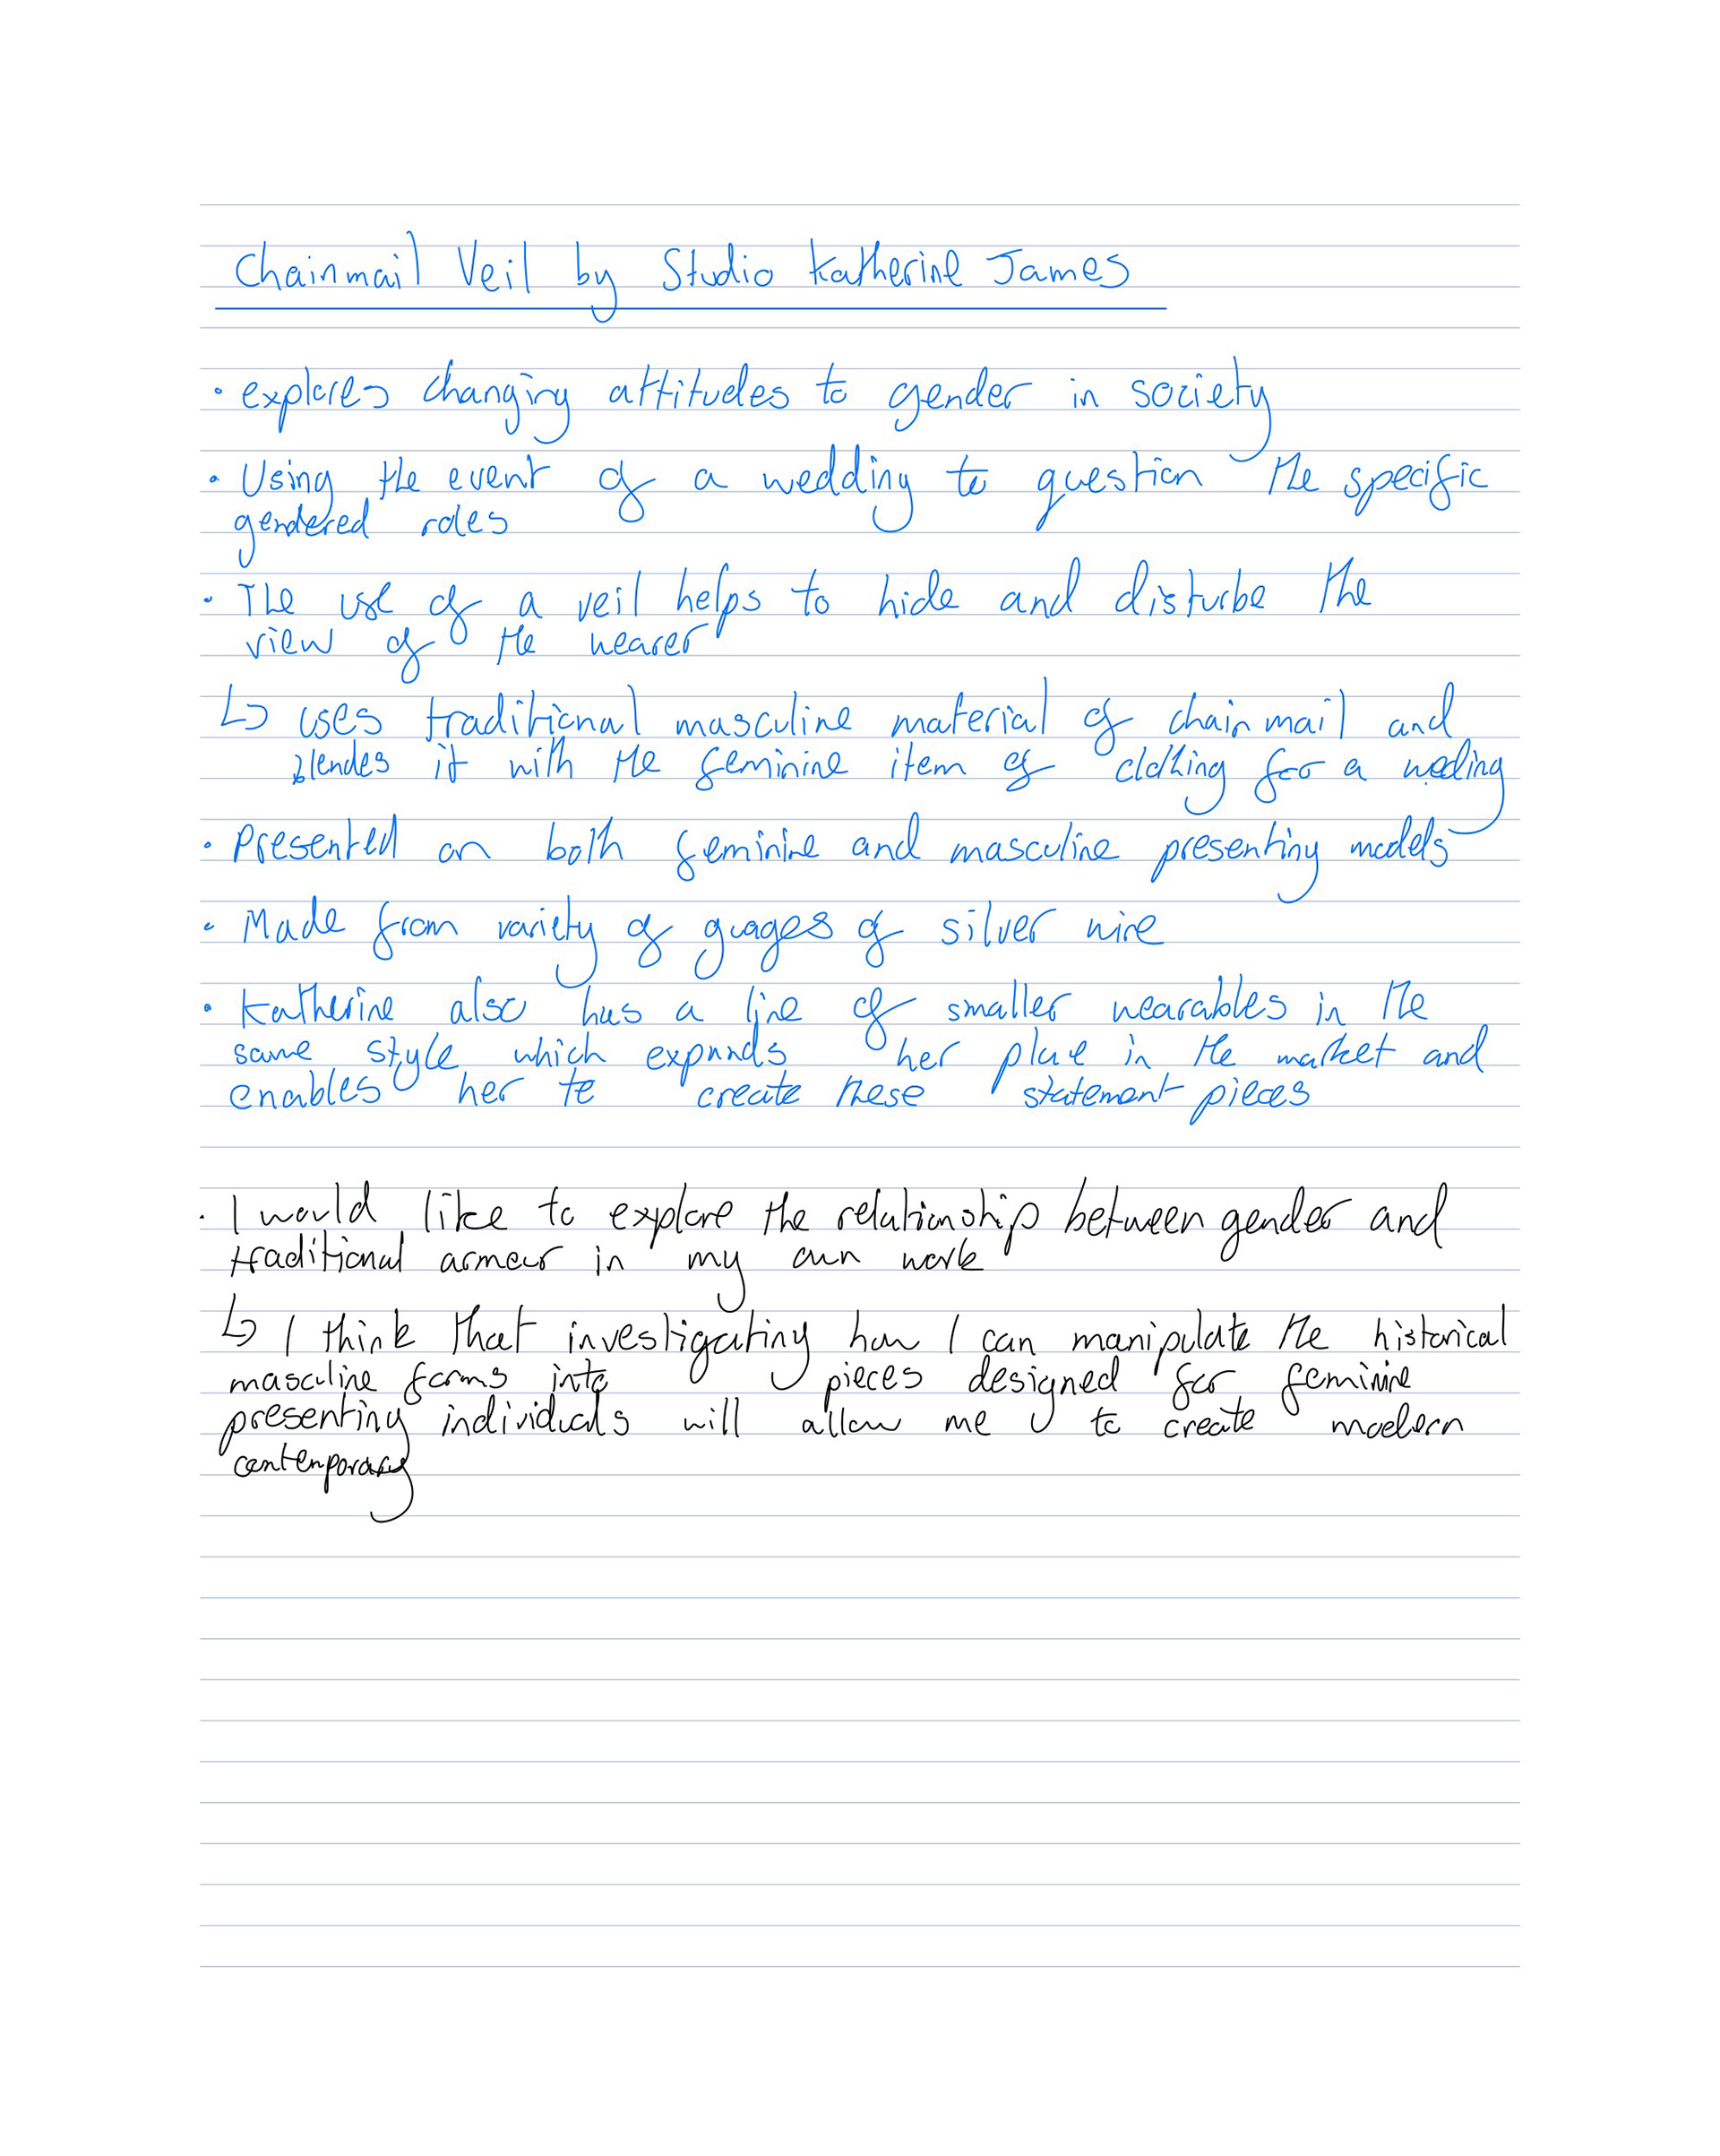 Chainmail Veil by Studio Katherine James
• explores changing attitudes to gender in society
• Using the event of a wedding to question the specific
gendered roles
• The use of a veil helps to hide and disturbe the
view of the wearer
↳ uses traditional masculine material of chainmail and
blendes it with the feminine item of clothing for a weding
• Presented on both feminine and masculine presenting models
• Made from variety of guages of silver wire
• Katherine also has a line of smaller wearables in the
same style which expands her place in the market and
enables her to create these statement pieces
• I would like to explore the relationship between gender and
traditional armour in my own work
↳ I think that investigating how I can manipulate the historical
masculine forms into pieces designed for feminine
presenting individuals will allow me to create modern
contemporary